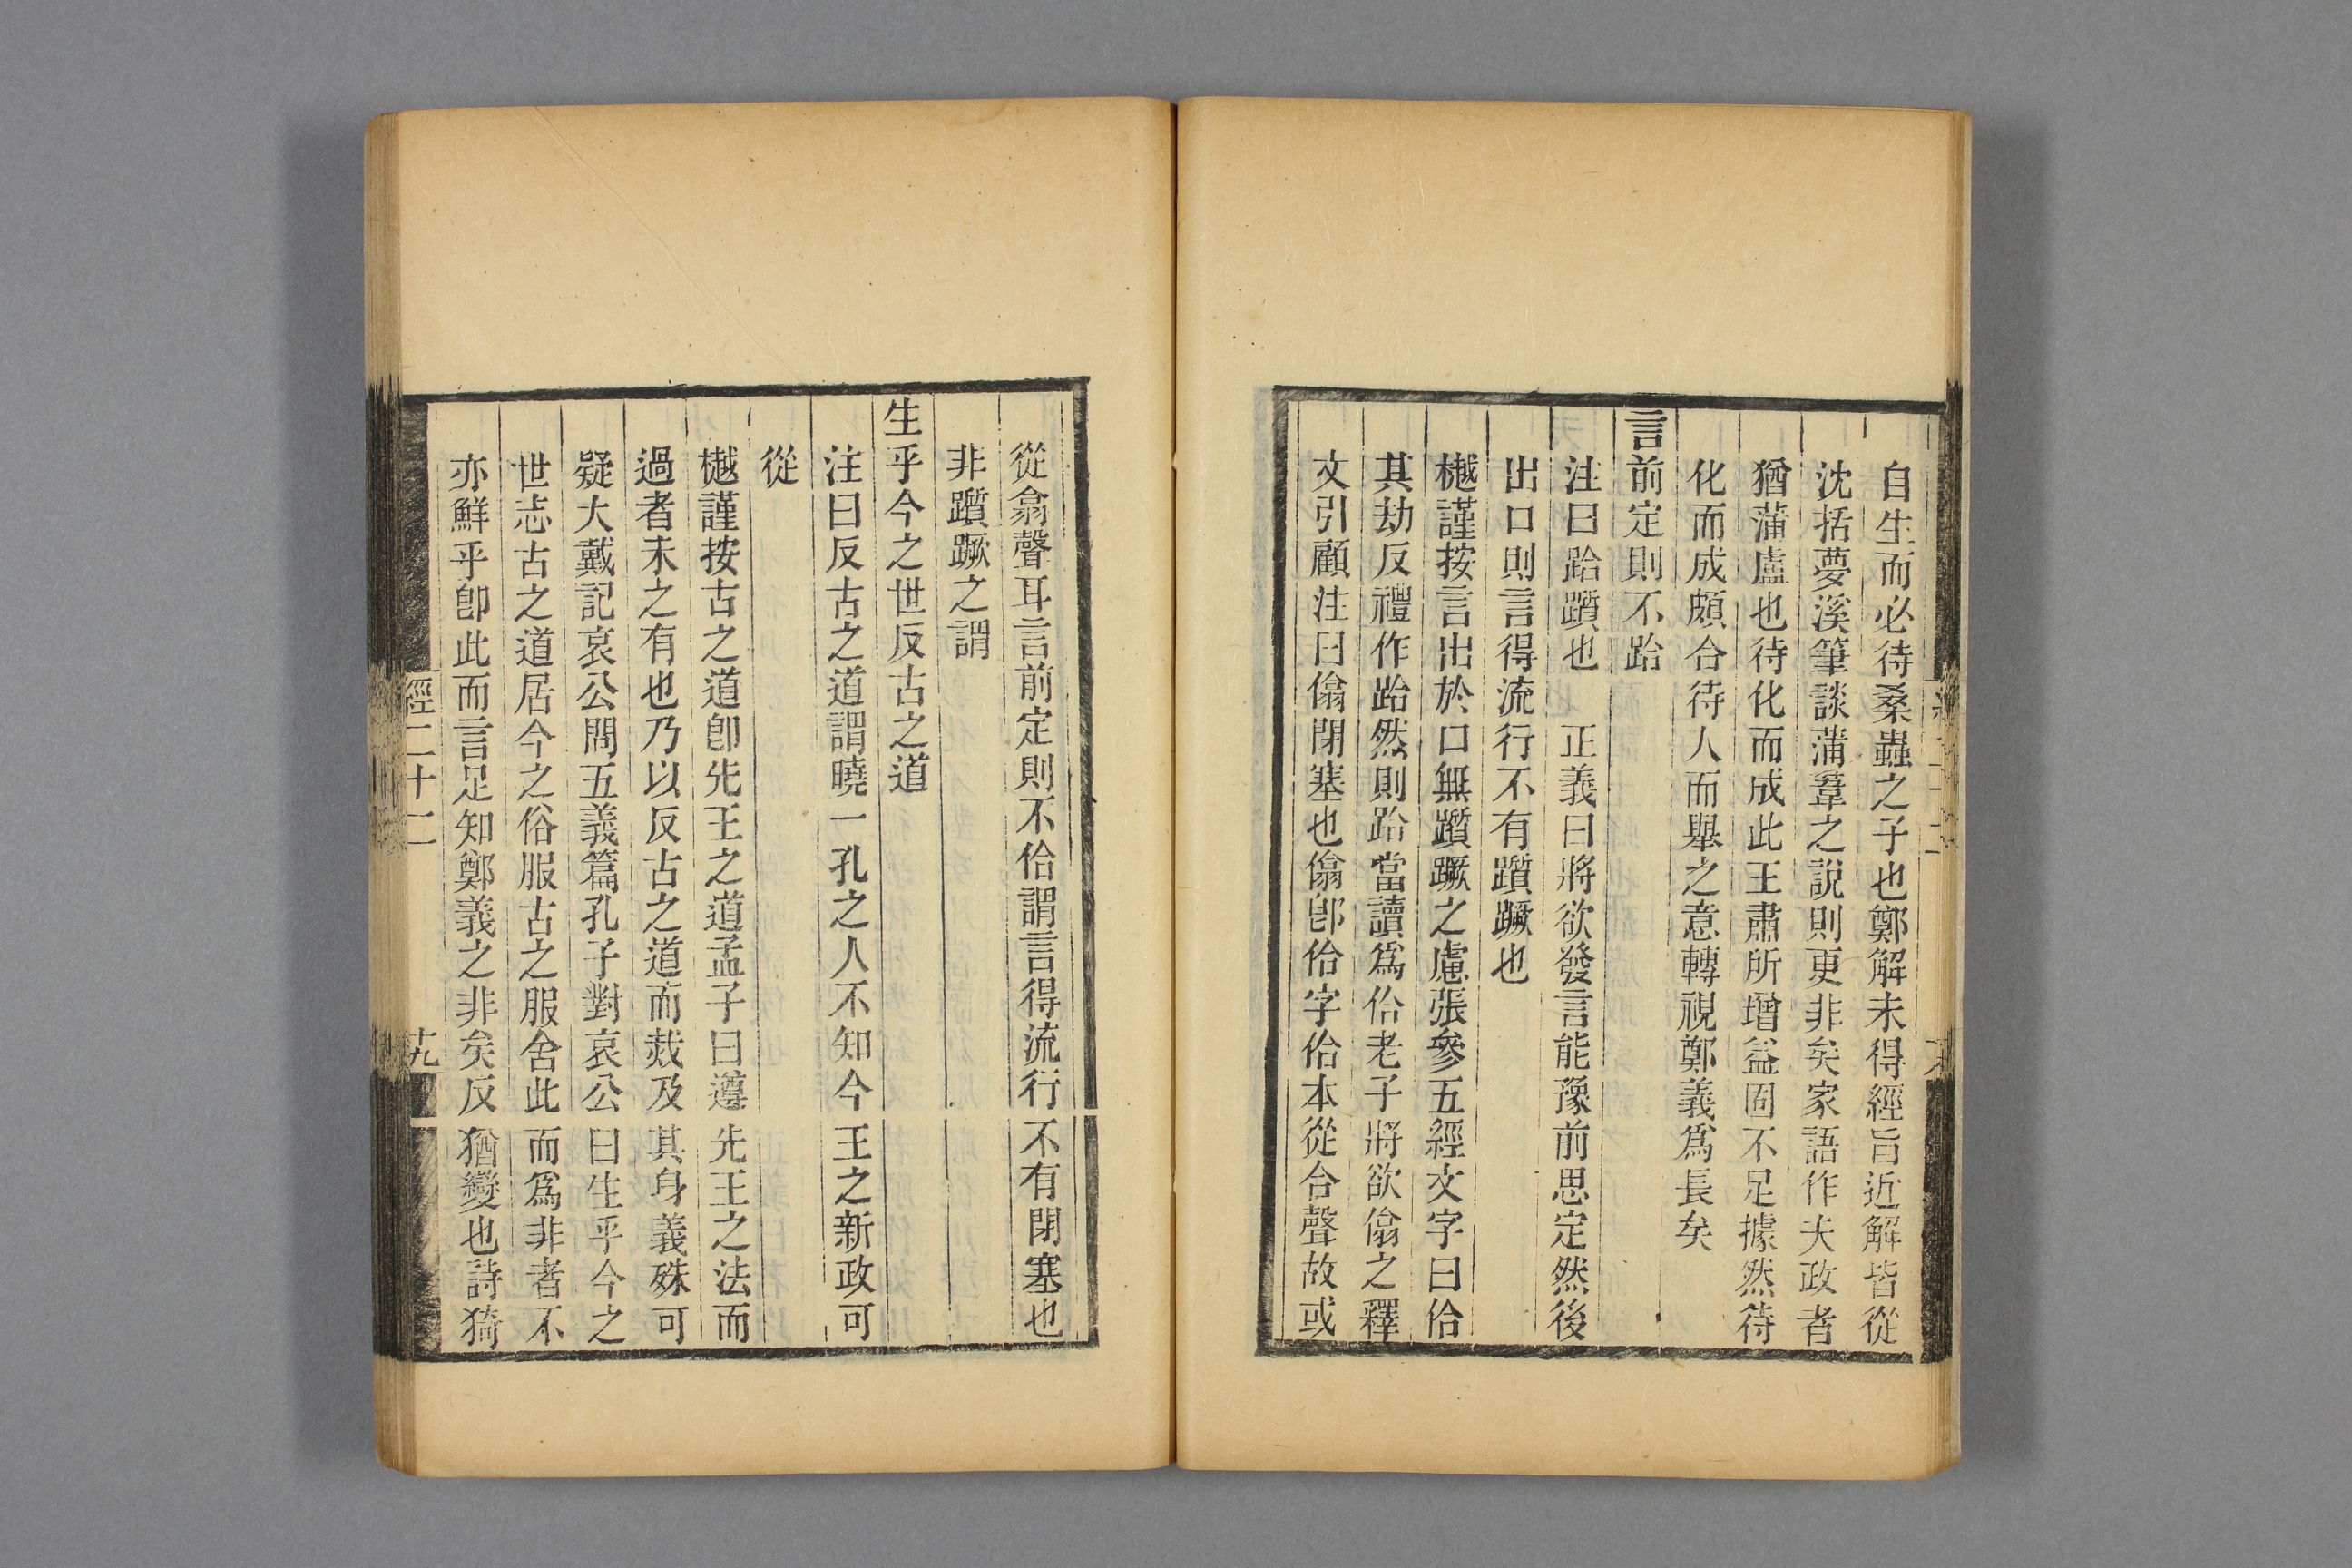 自生而必待桑蟲之子也鄭解未得經旨近解皆從
沈括夢溪筆談蒲葦之說則更非矣家語作夫政者
猶蒲盧也待化而成此王肅所增益固不足據然待
化而成頗合待人而舉之意轉視鄭義爲長矣
言前定則不跲
注曰跲躓也 正義曰將欲發言能豫前思定然後
出口則言得流行不有躓蹶也
樾謹按言出於口無躓蹶之慮張參五經文字曰佮
其劫反禮作跲然則跲當讀爲佮老子將欲傓之釋
文引顧注曰傓閉塞也傓卽佮字佮本從合聲故或
從翕聲耳言前定則不佮謂言得流行不有閉塞也
非躓蹶之謂
生乎今之世反古之道
注曰反古之道謂曉一孔之人不知今王之新政可
從
樾謹按古之道卽先王之道孟子曰遵先王之法而
過者未之有也乃以反古之道而烖及其身義殊可
疑大戴記哀公問五義篇孔子對哀公曰生乎今之
世志古之道居今之俗服古之服舍此而爲非者不
亦鮮乎卽此而言足知鄭義之非矣反猶變也詩猗
經二十二
十九